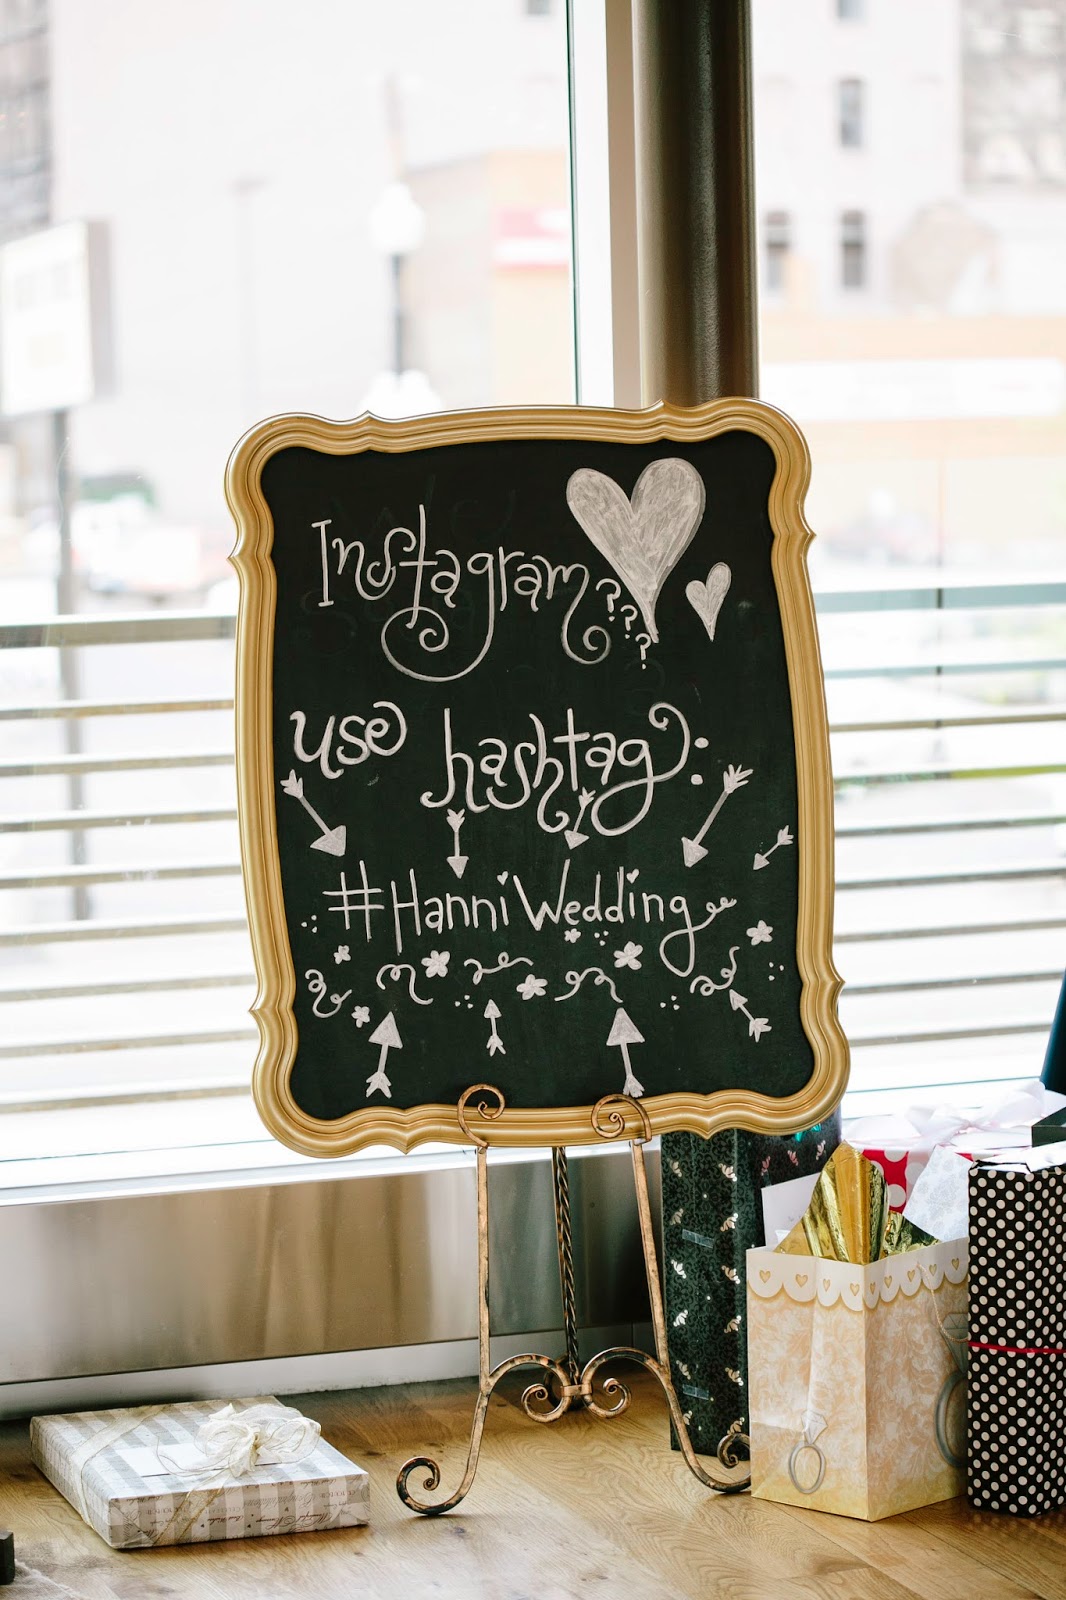 Instagram????
use hashtag:
#HanniWedding